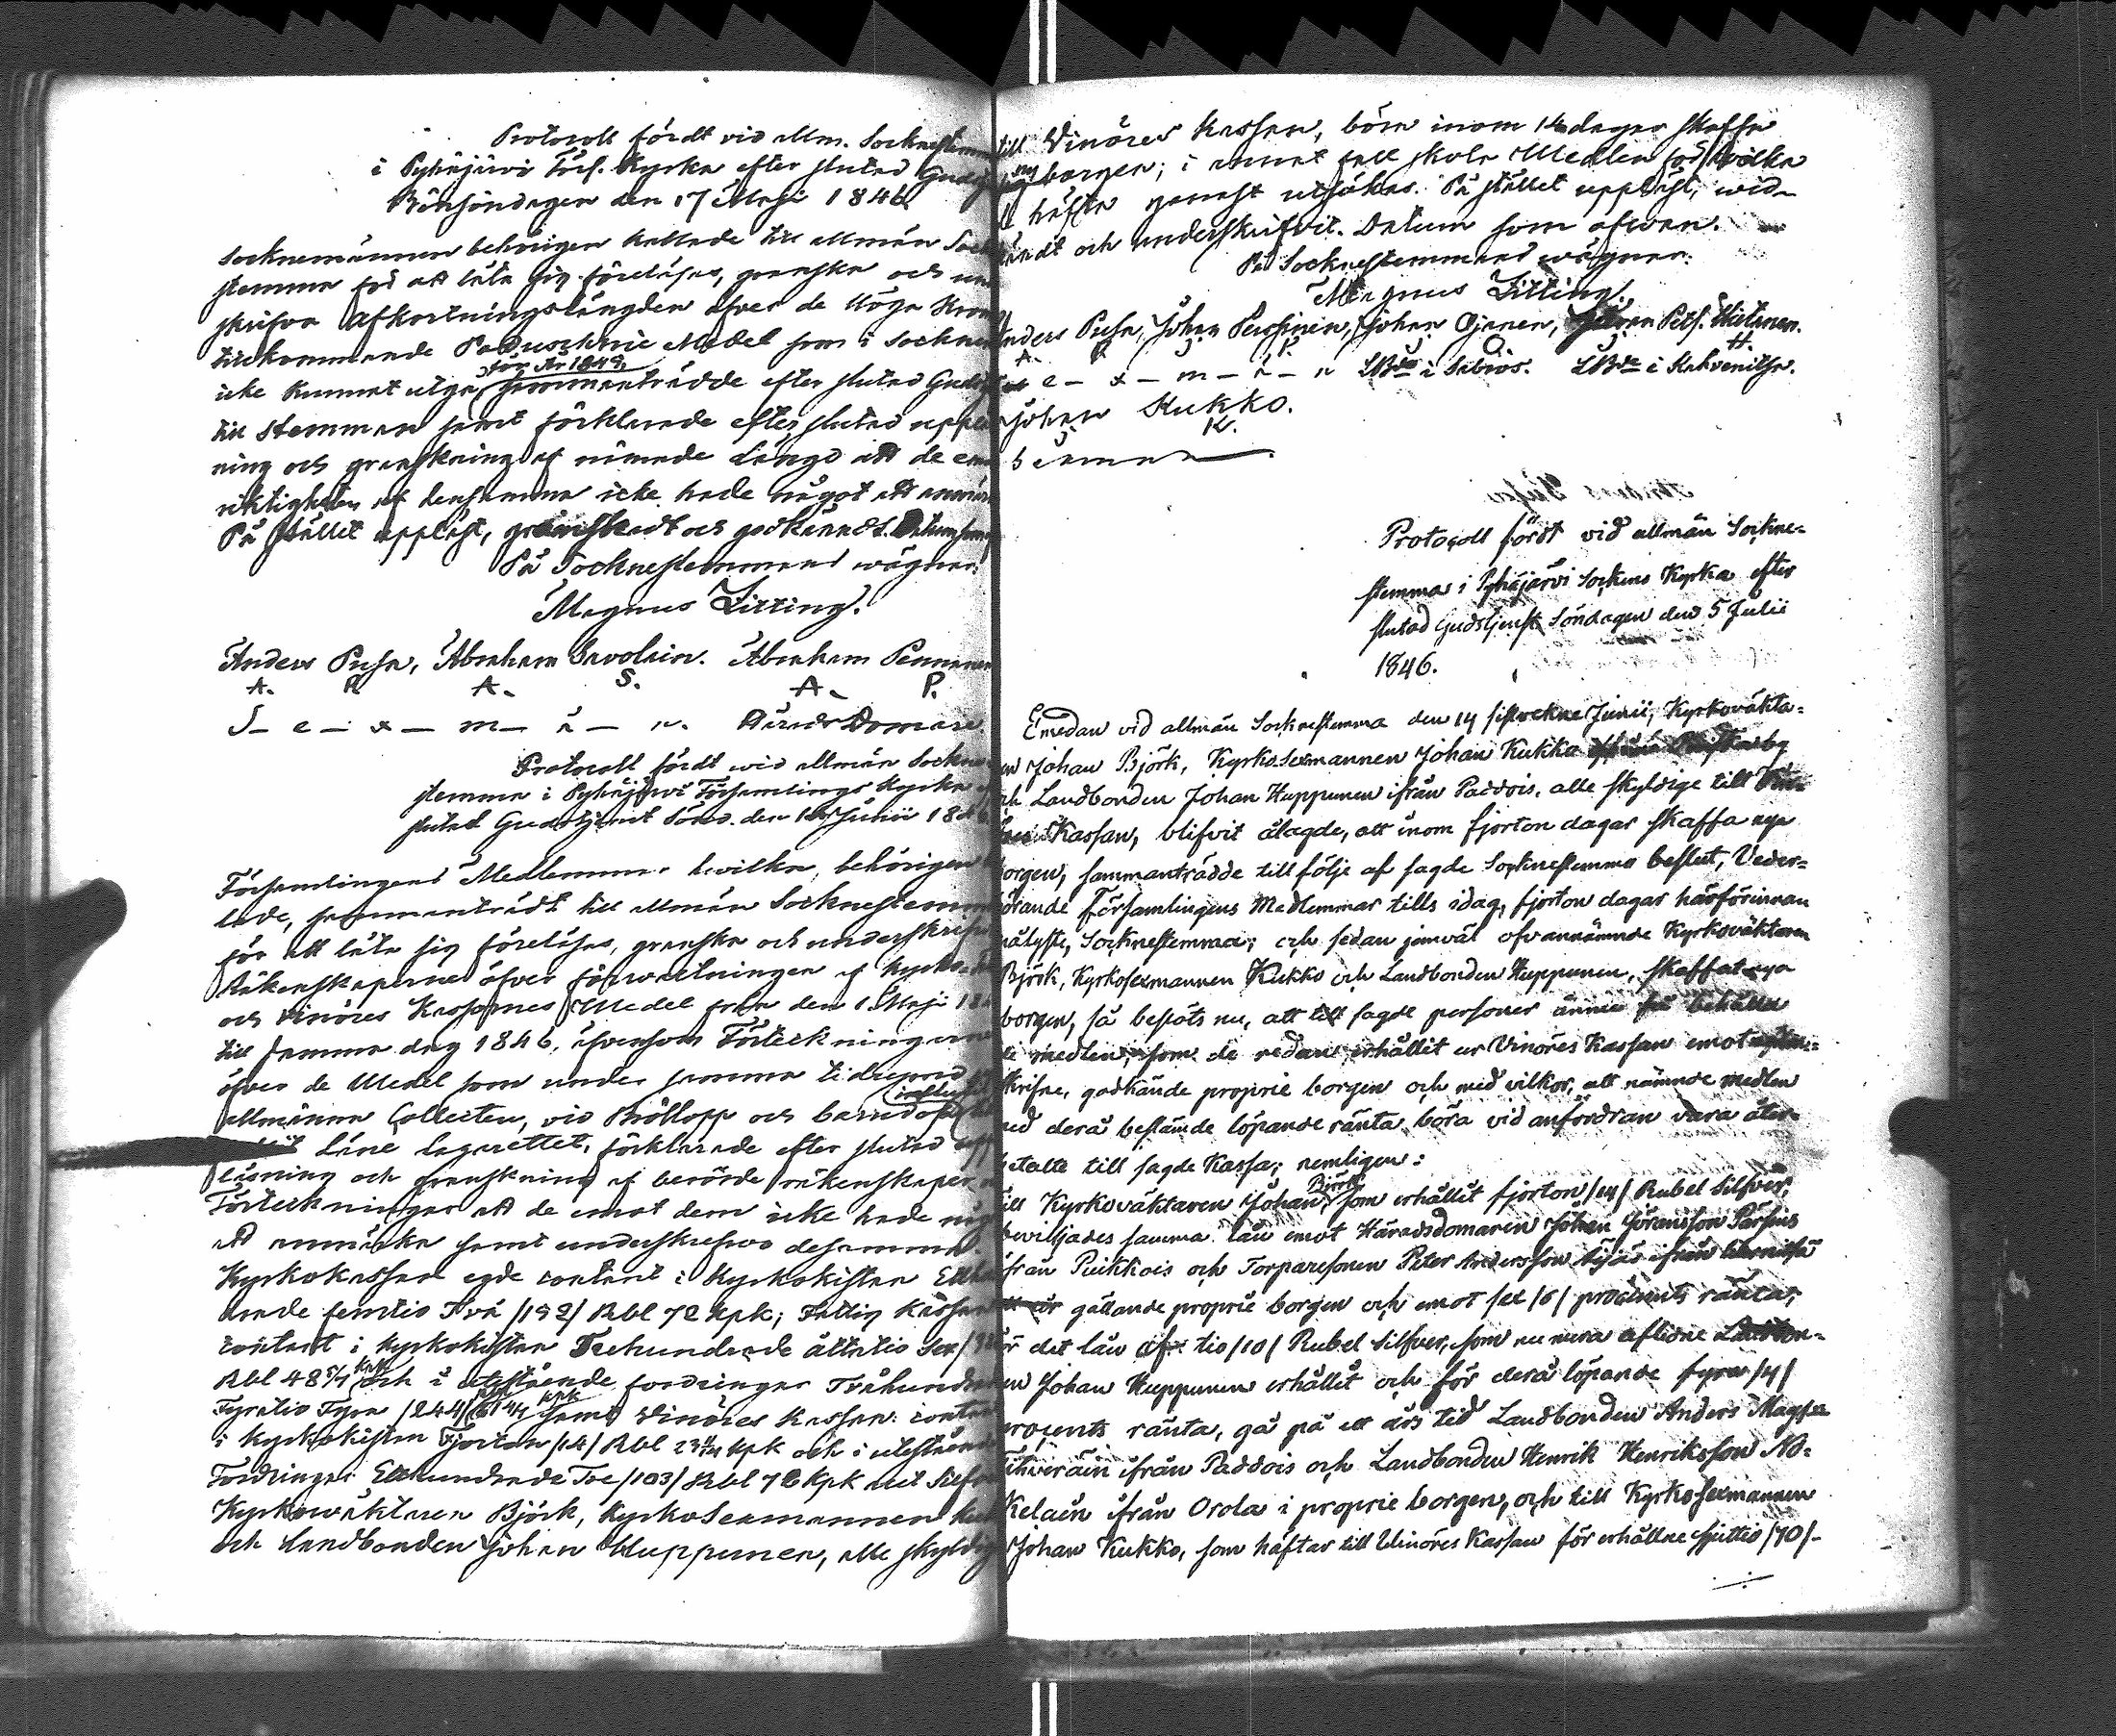 Protocoll fördt vid allm. Sockenstemm
i Pyhäjärvi Förs. Kyrka efter slutad Gudstj
Bönsöndagen den 17 Maji 1846.
Socknemännen behörigen kallade till allmän Sock
stemma för att låta sig föreläsas, granska och un
skrifva Afkortningslängden öfver de Höga Kron
tillkommande Medel som i Socknen
för År 1849,
icke kunnat utgå, sammanträdde efter slutad Gudstj
till stemman samt förklarade efter slutad upplä
ning och granskning af nämnde Längd att de em
riktigheten af densamma icke hade något att anmär
På stället uppläst, granskadt och godkändt. Datum som
På Socknestemmans wägnar:
Magnus Litting.
Anders Pusa, Abraham Savolain. Abraham Pennanen
A. P. A. S. A. P.
S - e - x - m - ä - n. Härads Domare.
Protocoll fördt wid allmän Sockne
stemma i Pyhäjärvi Församlings Kyrka e
slutad Gudstjenst Sönd. den 14 Junii 1846
Församlingens Medlemmar hvilka, behörigen k
lade, sammanträdt till allmän Socknestemma
för att låta sig föreläsas, granska och underskrifva
Räkenskaperne öfver förvaltningen af Kyrko
och Vinöres Kassornes Medel från den 1 Maji 18
till samma dag 1846, äfvensom Förteckningarne
öfver de Medel som under samma tidrymd
influtit
allmänna Collecten, vid Bröllopp och barndop
Läne Lazarettet, förklarade efter slutad upp
läsning och granskning af berörde räkenskaper
Förteckningar att de emot dem icke hade någ
att anmärka samt underskrefvo desamma.
Kyrkokassan egde contant i Kyrkokistan Etthu
drade femtio Två /152/ Rbl 72 kpk; Fattig Kassan
contant i Kyrkokistan Trehundrade åttatio Sex /38
Rbl 48 5/7 kpk och i utestående fordringar Tvåhundra
Fyratio Fyra /244/ Rbl 6 1/4 kpk samt Vinöres Kassan: contant
i Kyrkokistan Fjorton /14/ Rbl 23 4/7 kpk och i utestående
Fordringar Etthundrade Tre /103/ Rbl 76 kpk allt Silf
Kyrkowäktaren Björk, Kyrko Sexmannen Kuk
och Landbonden Johan Huppunen, alla skyldig
till Vinöres Kassan, böra inom 14 dagar skaffa
ny borgen; i annat fall skola Medlen för hvilka
de häfta genast utsökas. På stället uppläst, wid-
kändt och underskrifvit. Datum som ofvan.
På Socknestemmans wägnar:
Magnus Litting.
Anders Pusa, Johan Parssinen, Johan Ojanen, Göran Petf. Hietanen.
A. P. J. P. O H.
S e - x - m - ä - n LBde i Salois. LBde i
Johan Kukko.
K.
Sexman.
Protocoll fördt vid allmän Sockne-
stemma i Pyhäjärvi Sockens Kyrka efter
slutad Gudstjenst Söndagen den 5 Julii
1846.
Emedan vid allmän Socknestemma den 14 sistvekne Junii, Kyrkoväkta-
en Johan Björk, Kyrko-Sexmannen Johan Kukko
och Landbonden Johan Huppunen ifrån Paddois, alle skyldige till Vin-
öres Kassan, blifvit ålagde, att inom fjorton dagar skaffa nya
borgen, sammanträdde till följe af sagde Socknestemmo beslut, Veder-
börande Församlingens Medlemmar tills idag, fjorton dagar härförinnan
pålyste, Socknestemma; och sedan jemväl ofvannämnde Kyrkoväktaren
Björk, Kyrkosexmannen Kukko och Landbonden Huppunen, skaffat nya
borgen, så beslöts nu, att till sagde personer ännu få behålla
de medlen, som de redan erhållit ur Vinöres Kassan emot
skrifne, godkände proprie borgen och med vilkor, att nämnde medlen
med derå bestämde löpande ränta böra vid anfordran vara åter-
betalte till sagde Kassa; nemligen:
till Kyrkoväktaren Johan Björk, som erhållit fjorton /14/ Rubel Silfver,
beviljades samma lån emot Häradsdomaren Johan Göransson Pärssins
ifrån Puikkois och Torparesonen Peter Andersson Äijäs ifrån
gällande proprie borgen och emot sex /6/ procents ränta;
för det lån af tio /10/ Rubel Silfver, som nu mera aflidne Landbon-
den Johan Huppunen erhållit och för derå löpande fyra /4/
procents ränta, gå på ett års tid Landbonden Anders Mags
Tihverain ifrån Paddois och Landbonden Henrik Henriksson No-
Kelain ifrån Orola i proprie borgen, och till Kyrkosexmannen
Johan Kukko, som häftar till Vinöres Kassan för erhållne sjuttio /70/-